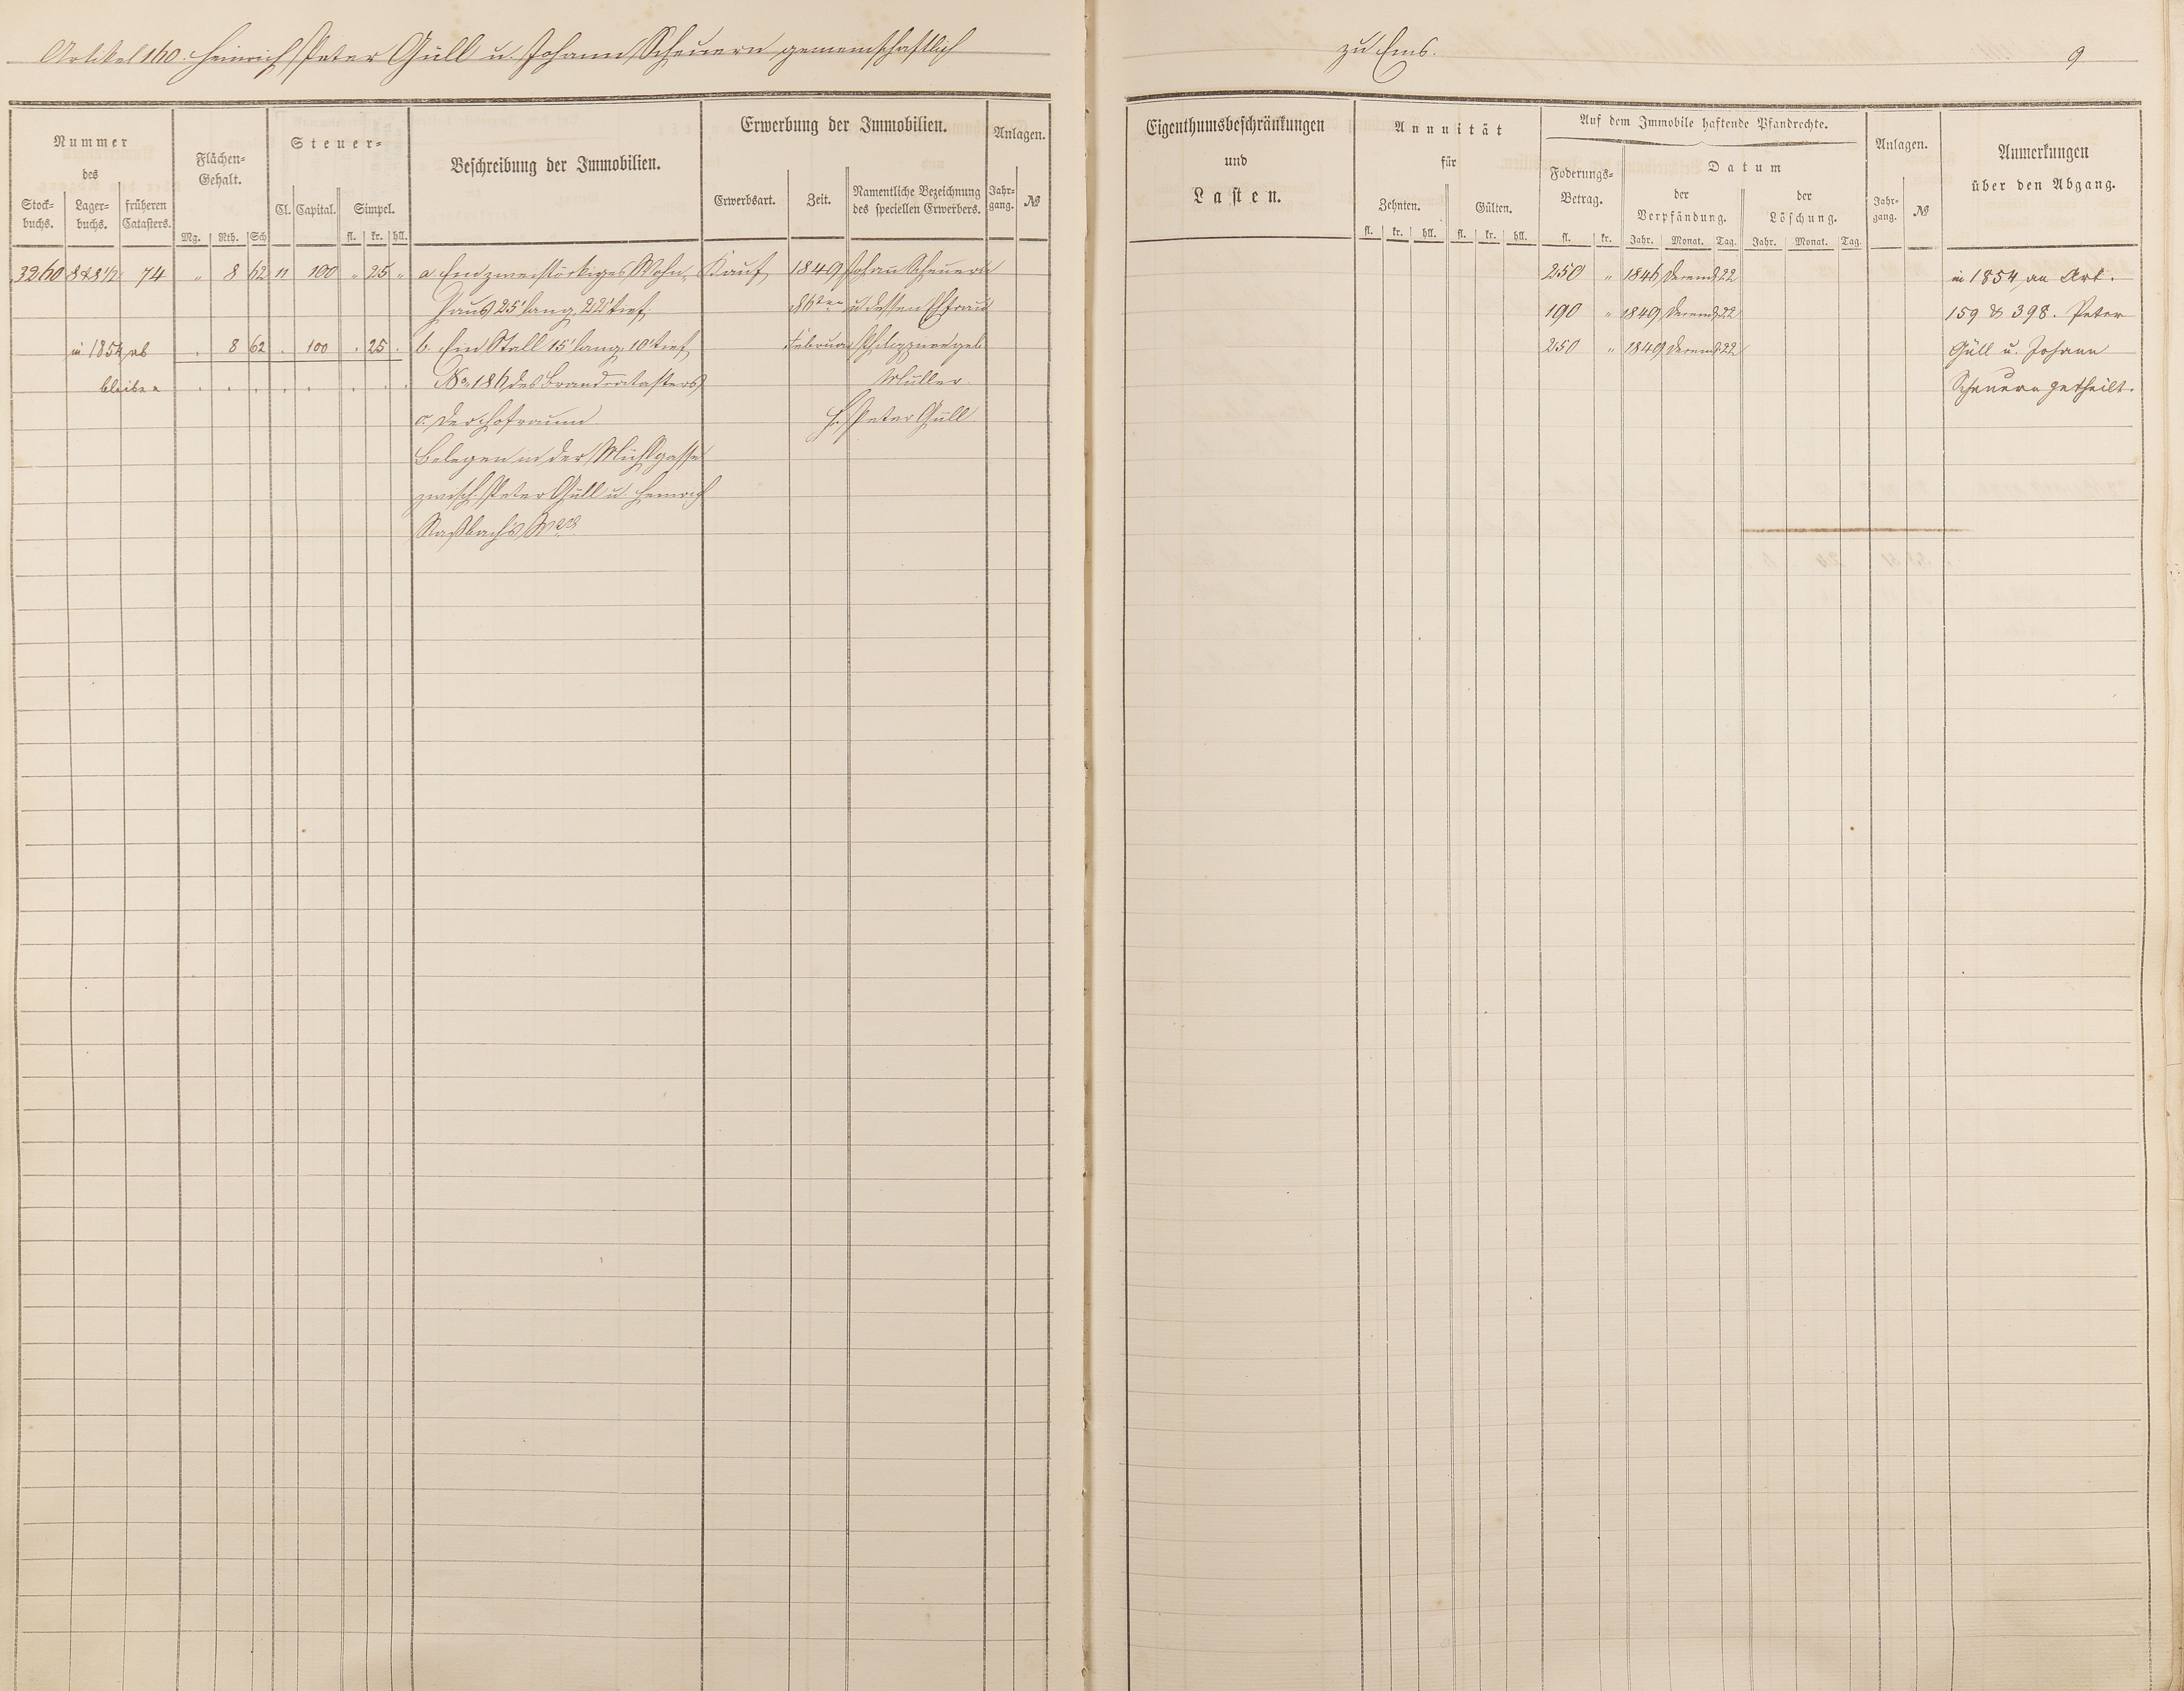 Artikel 160. Heinrich Peter Güll u. Johann Scheuern gemeinschaftlich
zu Ems.
9
Nummer
des
Stock-
buchs.
Lager-
buchs.
früheren
Catasters.
Flächen-
Gehalt.
Mg. Rth. Sch
Steuer-
Cl. Capital. Simpel.
fl. kr. hll.
Beschreibung der Immobilien.
Erwerbung der Immobilien.
Erwerbsart. Zeit.
Namentliche Bezeichnung
des speciellen Erwerbers.
Anlagen.
Jahr-
gang. №
Eigenthumsbeschränkungen
und
Lasten.
Annuität
für
Zehnten. Gülten.
fl. kr. hll. fl. kr. hll.
Auf dem Immobile haftende Pfandrechte.
Foderungs-
Betrag.
fl. kr.
Datum
der
Verpfändung.
Jahr. Monat. Tag.
der
Löschung.
Jahr. Monat. Tag.
Anlagen.
Jahr-
gang. №
Anmerkungen
über den Abgang.
3260 8&8½ 74 " 8 62 11 100 " 25 " a Ein zweistöckiges Wohn- Kauf, 1849 Johann Scheuern 250 " 1846 Decemb 22 in 1854 an Art.
haus 25' lang 22' tief. u dessen Ehefrau 190 " 1849 Decemb 22 159 & 398. Peter
in 1854 ab . 8 62 . 100 . 25 . b. Ein Stall 15' lang 10' tief Februar 250 " 1849 Decemb 22 Güll u. Johann
bleiben . . . . . . . . No. 186 des Brandcatasters Müller. Scheuern getheilt.
c. Der Hofraum H. Peter Güll
Belegen in der
zwisch. Peter Güll u. Heinrich